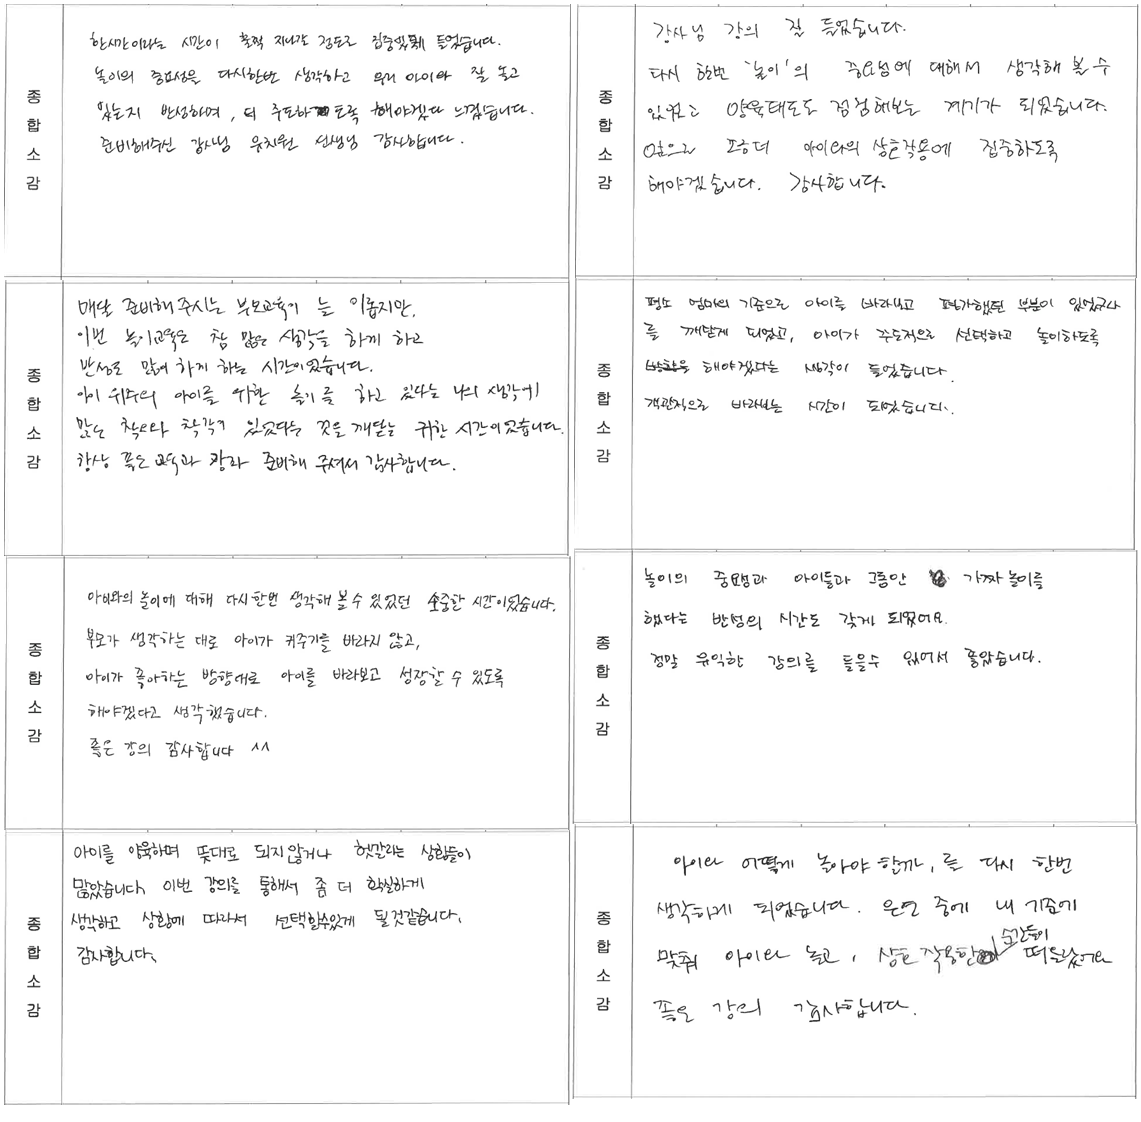 종
합
소
감
한시간이라는 시간이 훌쩍 지나갈 정도로 집중있게 들었습니다.
놀이의 중요성을 다시한번 생각하고 우리 아이와 잘 놀고
있는지 반성하며, 더 주도하도록 해야겠다 느꼈습니다.
준비해주신 강사님 유치원 선생님 감사합니다.
종
합
소
감
강사님 강의 잘 들었습니다.
다시 한번 '놀이'의 중요성에 대해서 생각해 볼 수
있었고 양육태도도 점검해보는 계기가 되었습니다.
앞으로 조금더 아이와의 상호작용에 집중하도록
해야겠습니다. 감사합니다.
종
합
소
감
매달 준비해 주시는 부모교육이 늘 이롭지만,
이번 놀이교육은 참 많은 생각을 하게 하고
반성도 많이 하게 하는 시간이었습니다.
아이 위주의 아이를 위한 놀이를 하고 있다는 나의 생각에
많은 착오와 착각이 있었다는 것을 깨닫는 귀한 시간이었습니다.
항상 좋은 교육과 강좌 준비해 주셔서 감사합니다.
종
합
소
감
평소 엄마의 기준으로 아이를 바라보고 평가했던 부분이 있었구나
를 깨닫게 되었고, 아이가 주도적으로 선택하고 놀이하도록
해야겠다는 생각이 들었습니다.
객관적으로 바라보는 시간이 되었습니다.
종
합
소
감
아이와의 놀이에 대해 다시한번 생각해 볼 수 있었던 소중한 시간이었습니다.
부모가 생각하는 대로 아이가 커주기를 바라지 않고,
아이가 좋아하는 방향대로 아이를 바라보고 성장할 수 있도록
해야겠다고 생각했습니다.
좋은 강의 감사합니다 ^^
종
합
소
감
놀이의 중요성과 아이들과 그동안 가짜놀이를
했다는 반성의 시간도 갖게 되었어요.
정말 유익한 강의를 들을수 있어서 좋았습니다.
종
합
소
감
아이를 양육하며 뜻대로 되지않거나 헷갈리는 상황들이
많았습니다. 이번 강의를 통해서 좀 더 확실하게
생각하고 상황에 따라서 선택할수있게 될것같습니다.
감사합니다.
종
합
소
감
아이와 어떻게 놀아야 할까, 를 다시 한번
생각하게 되었습니다. 은연 중에 내 기준에
맞춰 아이와 놀고, 상호작용한 순간들이 떠올랐어요
좋은 강의 감사합니다.